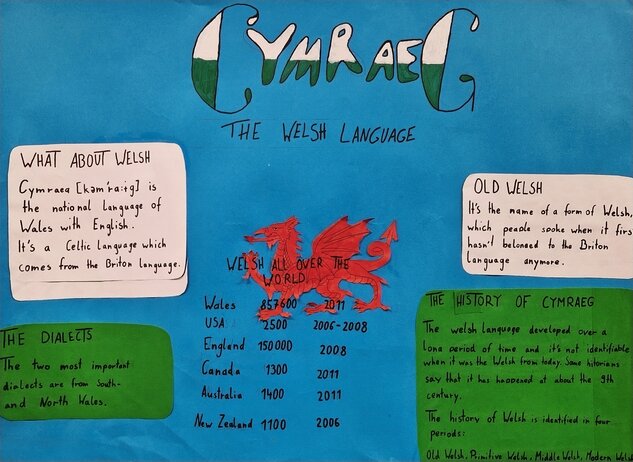 CYMRAEG
THE WELSH LANGUAGE
WHAT ABOUT WELSH
Cymraeg [kəm'ra:ɨg] is
the national language of
Wales with English.
It's a Celtic language which
comes from the Briton language.
THE DIALECTS
The two most important
dialects are from South-
and North Wales.
WELSH ALL OVER THE
WORLD
Wales 857600 2011
USA 2500 2006-2008
England 150000 2008
Canada 1300 2011
Australia 1400 2011
New Zealand 1100 2006
OLD WELSH
It's the name of a form of Welsh,
which people spoke when it firs
hasn't belonged to the Briton
language anymore.
THE HISTORY OF CYMRAEG
The welsh language developed over a
long period of time and it's not identifiable
when it was the Welsh from today. Some hitorians
say that it has happened at about the 9th
century.
The history of Welsh is identified in four
periods:
Old Welsh, Primitive Welsh, Middle Welsh, Modern Welsh